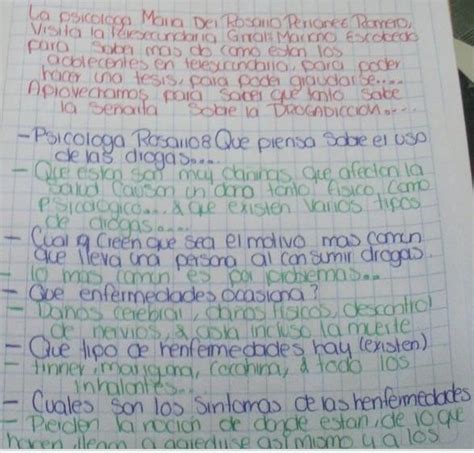 La psicologa Maria Del Rosario Periañez Romero,
Visita la telesecundaria Gral Mariano Escobedo
para saber mas de como estan los
adolecentes en telesecundaria, para poder
hacer una tesis, para poder graudarse....
Aprovechamos para saber que tanto sabe
la Señorita sobre la DROGADICCION....
- Psicologa Rosario: Que piensa sobre el uso
de las drogas....
- Que estan son muy dañinas, que afectan la
salud causan un daño tanto fisico, como
psicologico... & que existen varios tipos
de drogas....
- Cual creen que sea el motivo mas comun
que lleva una persona al consumir drogas.
- lo mas comun es por problemas...
- Que enfermedades ocasiona?
- Daños cerebral, daños fisicos, descontrol
de nervios, & asta incluso la muerte
- Que tipo de henfermedades hay (existen)
- tinner, mariguana, & todo los
inhalantes...
- Cuales son los sintomas de las henfermedades
- Pierden la nocion de donde estan, de lo que
hacen, llegan a agredirse asi mismo y a los